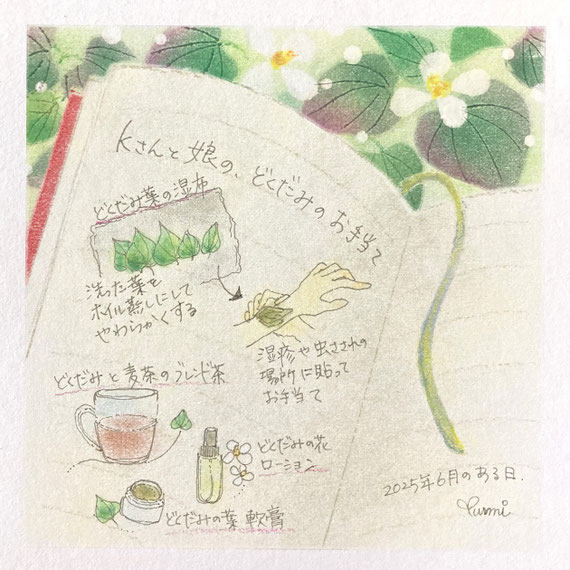 Kさんと娘の、どくだみのお手当て
どくだみ葉の湿布
洗った葉を
ホイル蒸しにして
やわらかくする
湿疹や虫さされの
場所に貼って
お手当て
どくだみと麦茶のブレンド茶
どくだみの花
ローション
どくだみの葉 軟膏
2025年6月のある日.
Yumi